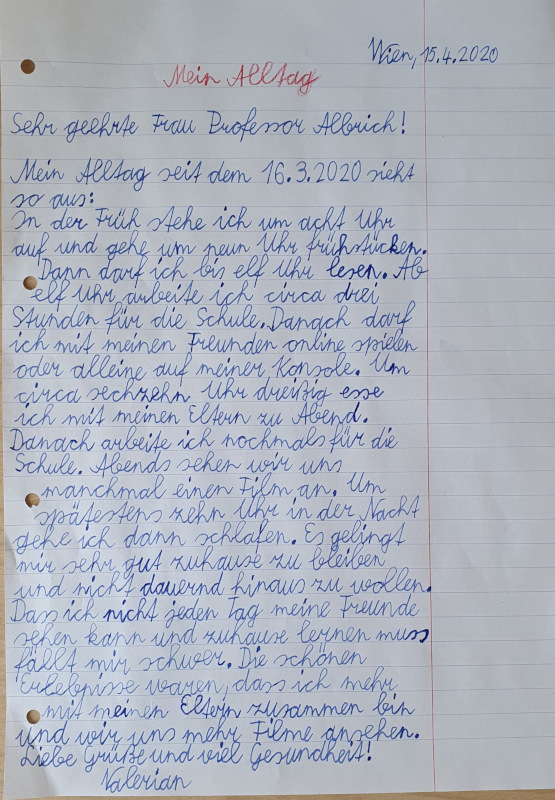 Wien, 15.4.2020
Mein Alltag
Sehr geehrte Frau Professor Albrich!
Mein Alltag seit dem 16.3.2020 sieht
so aus:
In der Früh stehe ich um acht Uhr
auf und gehe um neun Uhr frühstücken.
Dann darf ich bis elf Uhr lesen. Ab
elf Uhr arbeite ich circa drei
Stunden für die Schule. Danach darf
ich mit meinen Freunden online spielen
oder alleine auf meiner Konsole. Um
circa sechzehn Uhr dreißig esse
ich mit meinen Eltern zu Abend.
Danach arbeite ich nochmals für die
Schule. Abends sehen wir uns
manchmal einen Film an. Um
spätestens zehn Uhr in der Nacht
gehe ich dann schlafen. Es gelingt
mir sehr gut zuhause zu bleiben
und nicht dauernd hinaus zu wollen.
Dass ich nicht jeden Tag meine Freunde
sehen kann und zuhause lernen muss
fällt mir schwer. Die schönen
Erlebnisse waren, dass ich mehr
mit meinen Eltern zusammen bin
und wir uns mehr Filme ansehen.
Liebe Grüße und viel Gesundheit!
Valerian